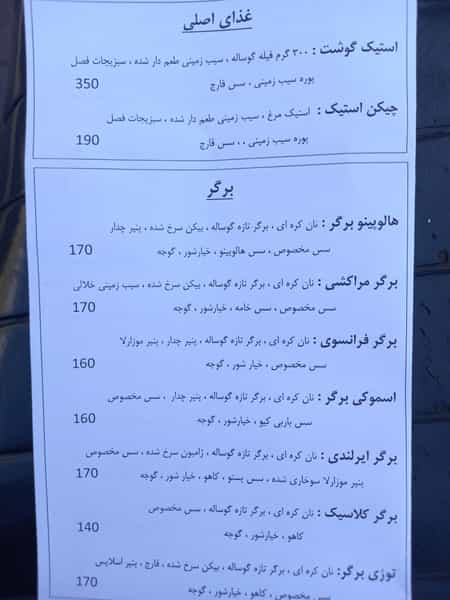 غذای اصلی
استیک گوشت : ۳۰۰ گرم فیله گوساله ، سیب زمینی طعم دار شده ، سبزیجات فصل
پوره سیب زمینی ، سس قارچ 350
چیکن استیک : استیک مرغ ، سیب زمینی طعم دار شده ، سبزیجات فصل
پوره سیب زمینی ، ، سس قارچ 190
برگر
هالوپینو برگر : نان کره ای ، برگر تازه گوساله ، بیکن سرخ شده ، پنیر چدار
سس مخصوص ، سس هالوپینو ، خیارشور ، گوجه 170
برگر مراکشی : نان کره ای ، برگر تازه گوساله ، بیکن سرخ شده ، سیب زمینی خلالی
سس مخصوص ، سس خامه ، خیارشور ، گوجه 170
برگر فرانسوی : نان کره ای ، برگر تازه گوساله ، پنیر چدار ، پنیر موزارلا
سس مخصوص ، خیار شور ، گوجه 160
اسموکی برگر : نان کره ای ، برگر تازه گوساله ، پنیر چدار ، سس مخصوص
سس باربی کیو ، خیارشور ، گوجه 160
برگر ایرلندی : نان کره ای ، برگر تازه گوساله ، ژامبون سرخ شده ، سس مخصوص
پنیر موزارلا سوخاری شده ، سس پستو ، کاهو ، خیار شور ، گوجه 170
برگر کلاسیک : نان کره ای ، برگر تازه گوساله ، سس مخصوص
کاهو ، خیارشور ، گوجه 140
توژی برگر: نان کره ای ، برگر تازه گوساله ، بیکن سرخ شده ، قارچ ، پنیر اسلایس
سس مخصوص ، کاهو ، خیارشور ، گوجه 170